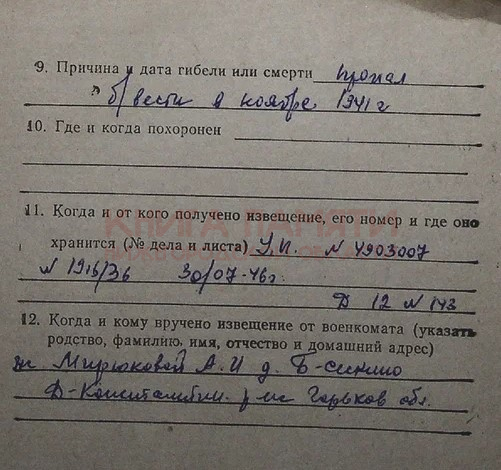 9. Причина и дата гибели или смерти пропал
б/вести в ноябре 1941 г
10. Где и когда похоронен
11. Когда и от кого получено извещение, его номер и где оно
хранится (№ дела и листа) У.П. N 4903007
N 1916/36 30/07-46г.
Д 12 N 143
12. Когда и кому вручено извещение от военкомата (указать
родство, фамилию, имя, отчество и домашний адрес)
А. И д. Б-
Д-Константин. р-на Горьков обл.
КНИГА ПАМЯТИ